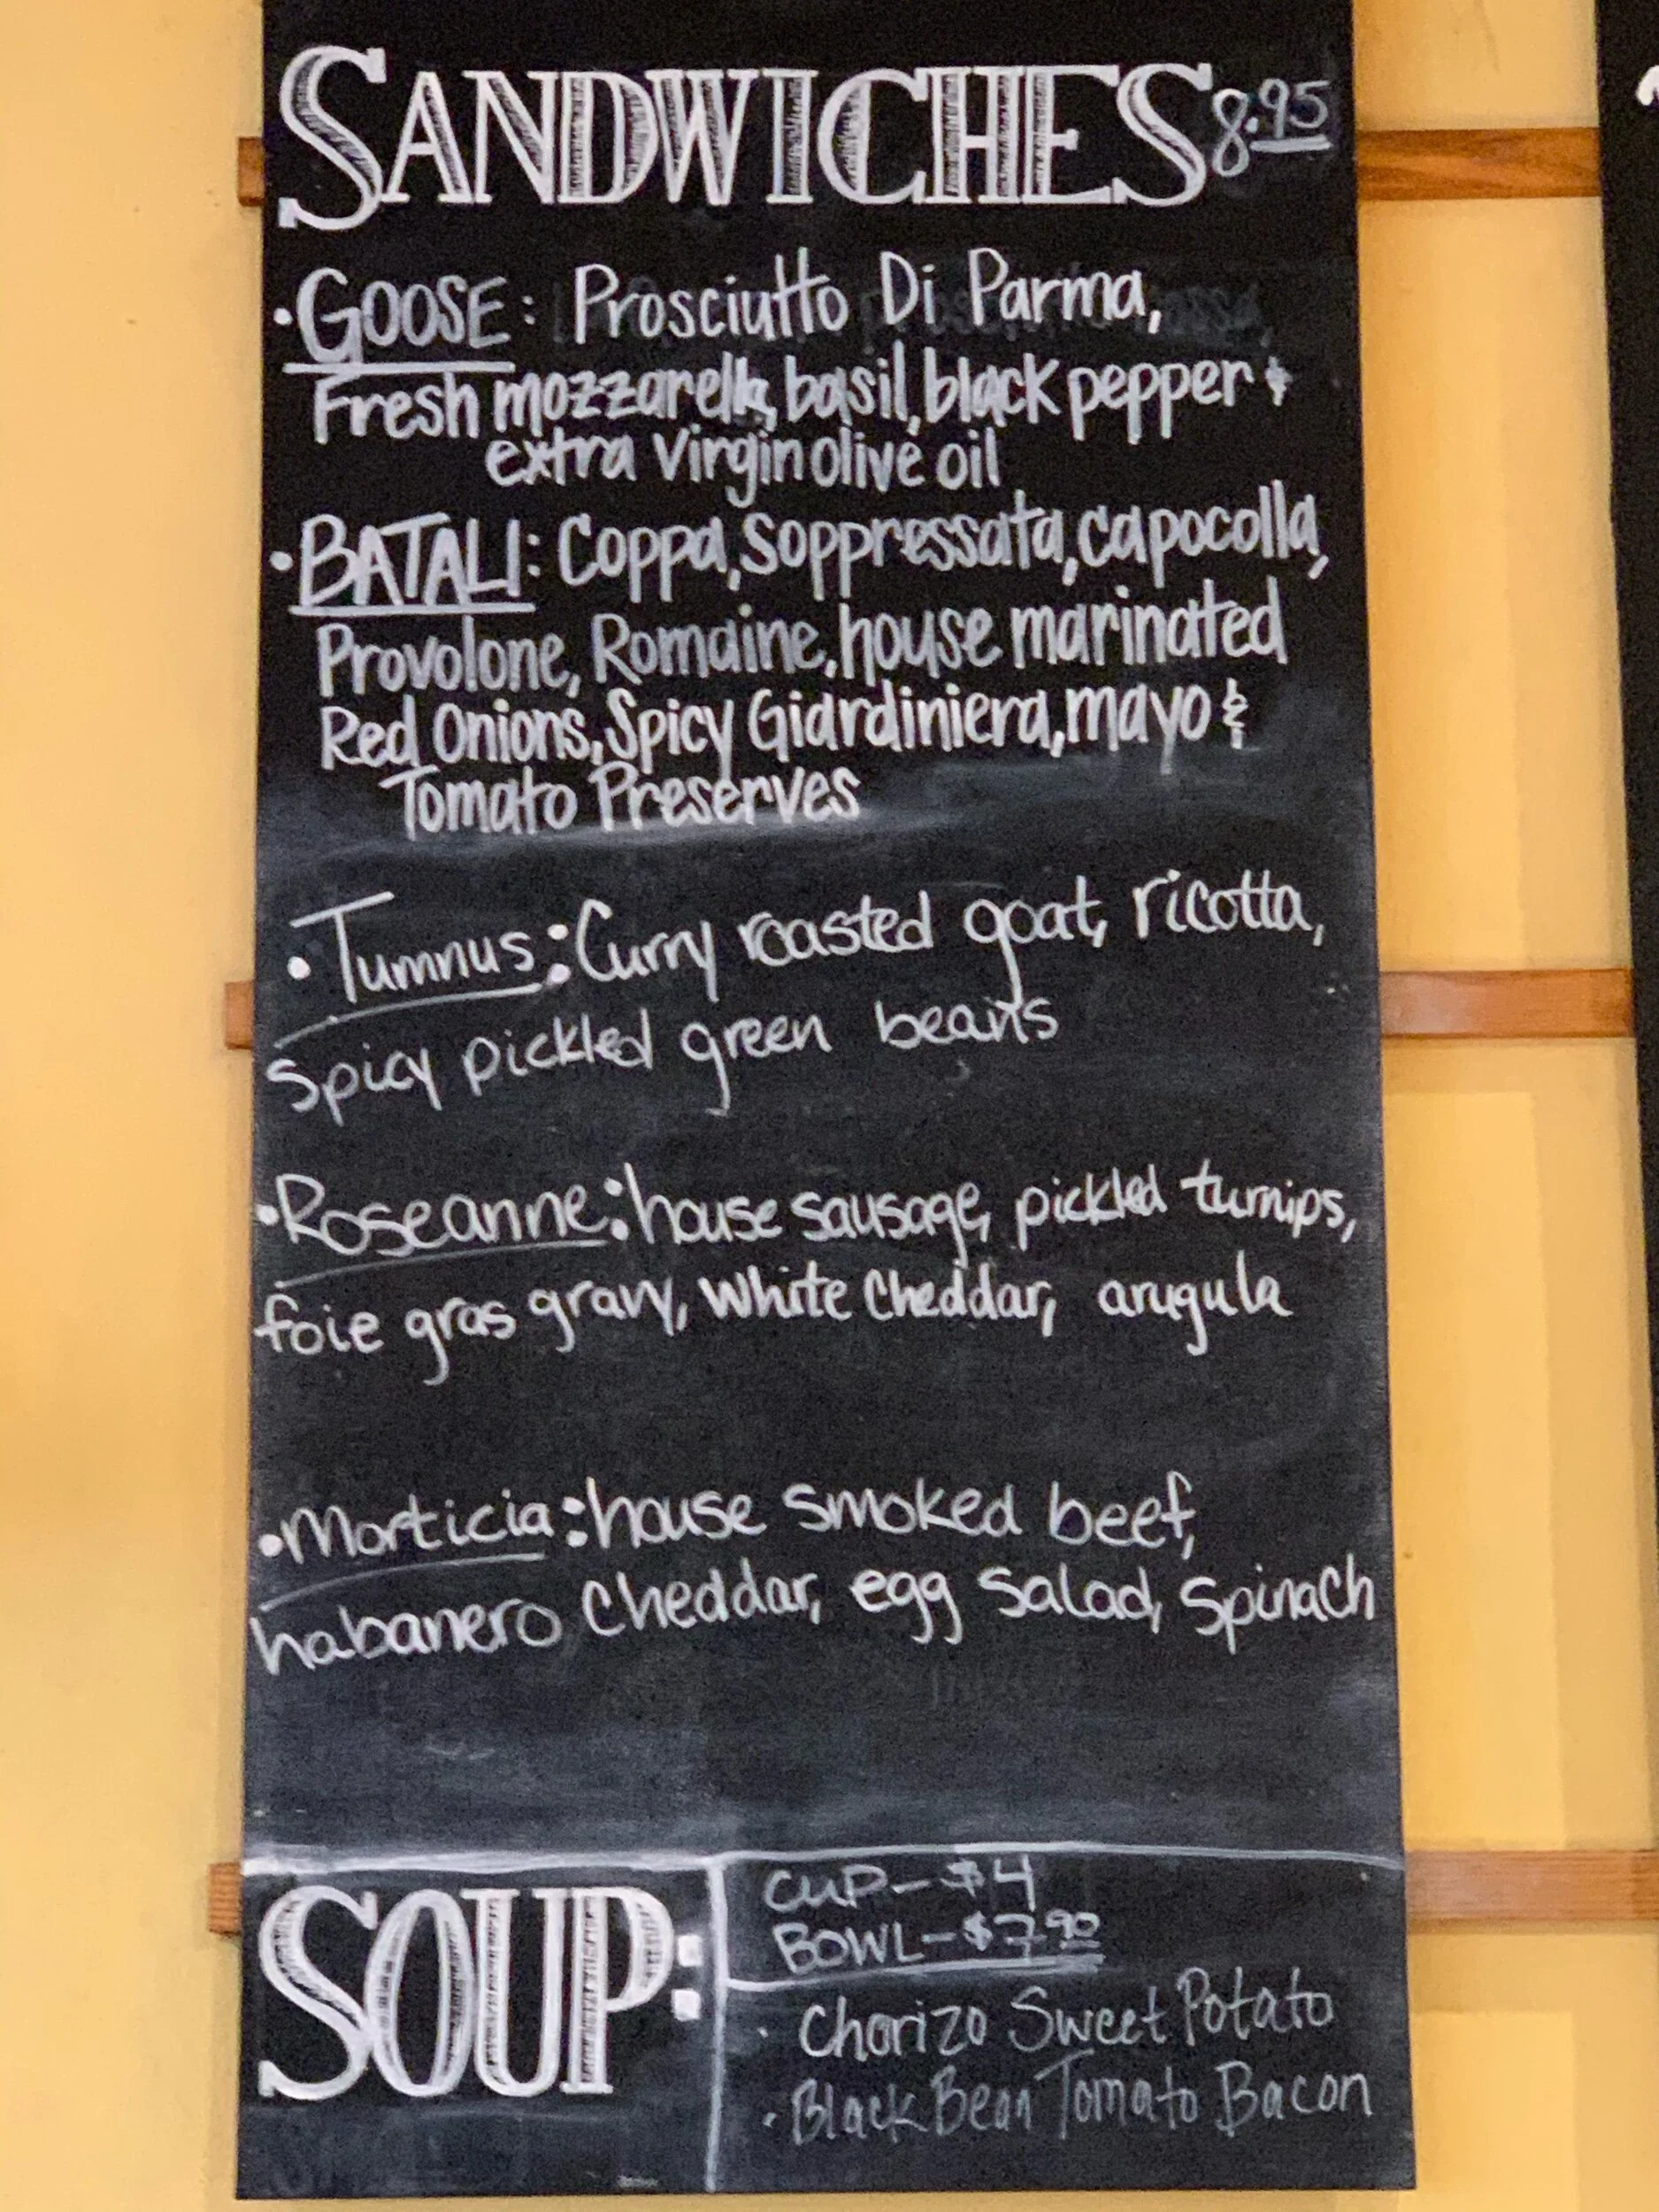 SANDWICHES 8.95
• GOOSE: Prosciutto Di Parma,
Fresh mozzarella, basil, black pepper &
extra virgin olive oil
• BATALI: Coppa, Soppressata, capocolla,
Provolone, Romaine, house marinated
Red Onions, Spicy Giardiniera, mayo &
Tomato Preserves
• Tumnus: Curry roasted goat, ricotta,
spicy pickled green beans
• Roseanne: house sausage, pickled turnips,
foie gras gravy, white cheddar, arugula
• Morticia: house smoked beef,
habanero cheddar, egg salad, spinach
SOUP:
CUP - $4
BOWL - $7.90
• Chorizo Sweet Potato
• Black Bean Tomato Bacon